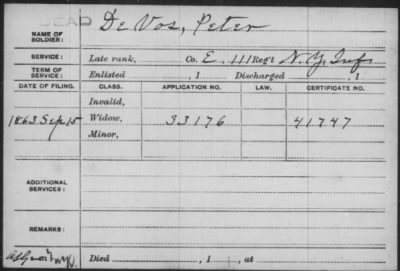 DEAD
NAME OF SOLDIER: De Vos, Peter
SERVICE: Late rank, Co. E, 111 Reg't N.Y. Inf.
TERM OF SERVICE: Enlisted , 1 Discharged , 1
DATE OF FILING. CLASS. APPLICATION NO. LAW. CERTIFICATE NO.
Invalid,
1863 Sep 15 Widow, 33176 41747
Minor,
ADDITIONAL SERVICES:
REMARKS:
Died , 1 , at